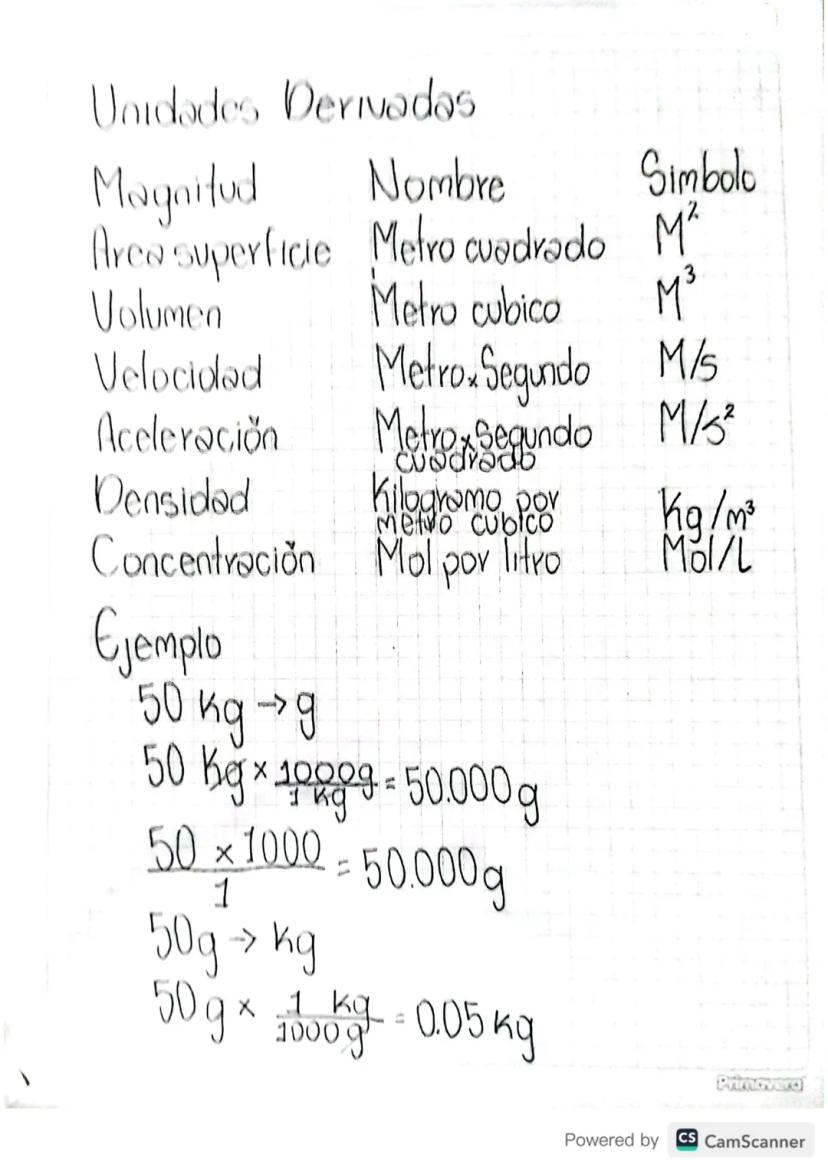 Unidades Derivadas
Magnitud Nombre Simbolo
Area superficie Metro cuadrado M²
Volumen Metro cubico M³
Velocidad Metro x Segundo M/s
Aceleración Metro x Segundo cuadrado M/s²
Densidad Kilogramo por metro cubico Kg/m³
Concentración Mol por litro Mol/L
Ejemplo
50 Kg → g
50 Kg × 1000g / 1 kg = 50.000 g
50 × 1000 / 1 = 50.000g
50g → kg
50 g × 1 kg / 1000 g = 0.05 kg
Primavera
Powered by CS CamScanner